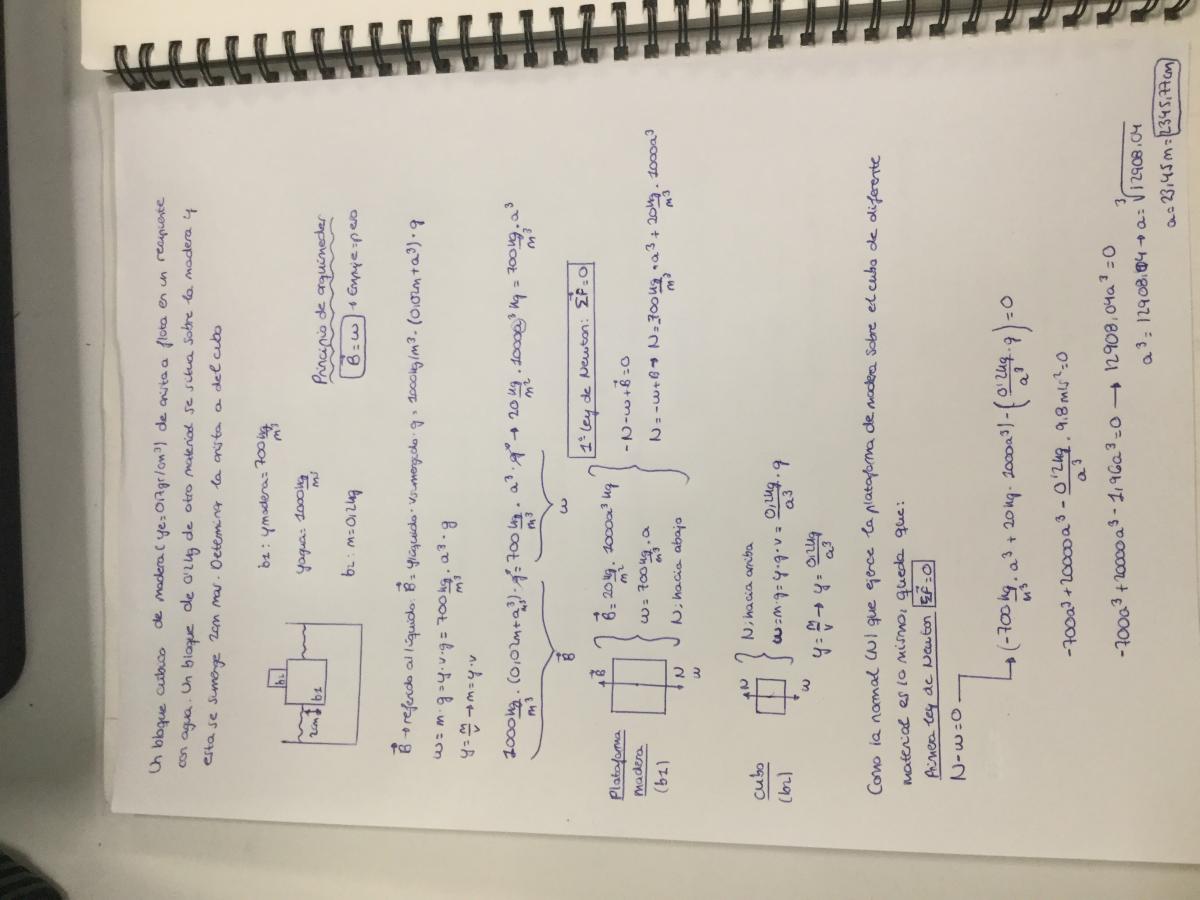 Un bloque cubico de madera (γe=0,7gr/cm³) de arista a flota en un recipiente
con agua. Un bloque de 0'2kg de otro material se situa sobre la madera y
esta se sumerge 2cm mas. Determina la arista a del cubo
b1: γmadera=700 kg/m³
γagua=1000 kg/m³
b2: m=0,2kg
b2
b1
2cm
Principio de arquimedes
B=w → Empuje=peso
B → referido al líquido: B=γliquido·Vsumergido·g=1000kg/m³·(0,02m+a³)·g
w=m·g=γ·v·g=700 kg/m³·a³·g
γ=m/v → m=γ·v
1000 kg/m³·(0,02m+a³)·g=700 kg/m³·a³·g → 20 kg/m²·1000a³ kg=700 kg/m³·a³
B
w
1ª ley de Newton: ΣF=0
Plataforma
madera
(b1)
B
N
w
B=20 kg/m²·1000a³ kg
w=700 kg/m³·a
N: hacia abajo
-N-w+B=0
N=-w+B → N=-700 kg/m³·a³+20 kg/m³·1000a³
Cubo
(b2)
N
w
N: hacia arriba
w=m·g=γ·g·v=0,2kg/a³·g
γ=m/v → γ=0'2kg/a³
Como la normal (N) que ejerce la plataforma de madera sobre el cubo de diferente
material es lo mismo, queda que:
Primera ley de Newton ΣF=0
N-w=0
(-700 kg/m³·a³+20kg·1000a³)-(0'2kg/a³·g)=0
-700a³+20000a³-0'2kg/a³·9.8m/s²=0
-700a³+20000a³-1,96a³=0 → 12908,04a³=0
a³=12908,04 → a=³√12908,04
a=23,45m=2345,77cm